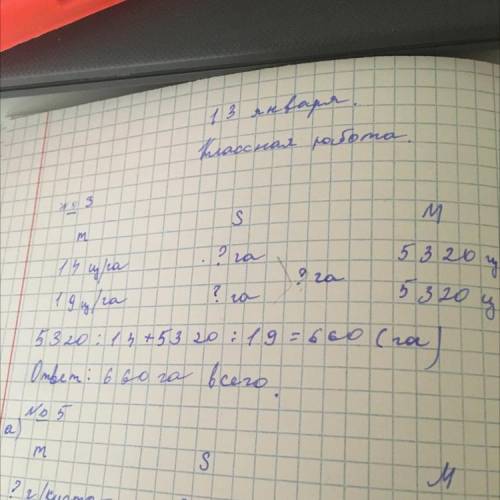 13 января.
Классная работа.
№ 3
m S M
14 ц/га ? га 5320 ц
? га
19 ц/га ? га 5320 ц
5320 : 14 + 5320 : 19 = 660 (га)
Ответ: 660 га всего.
№ 5
а)
m S M
? г/